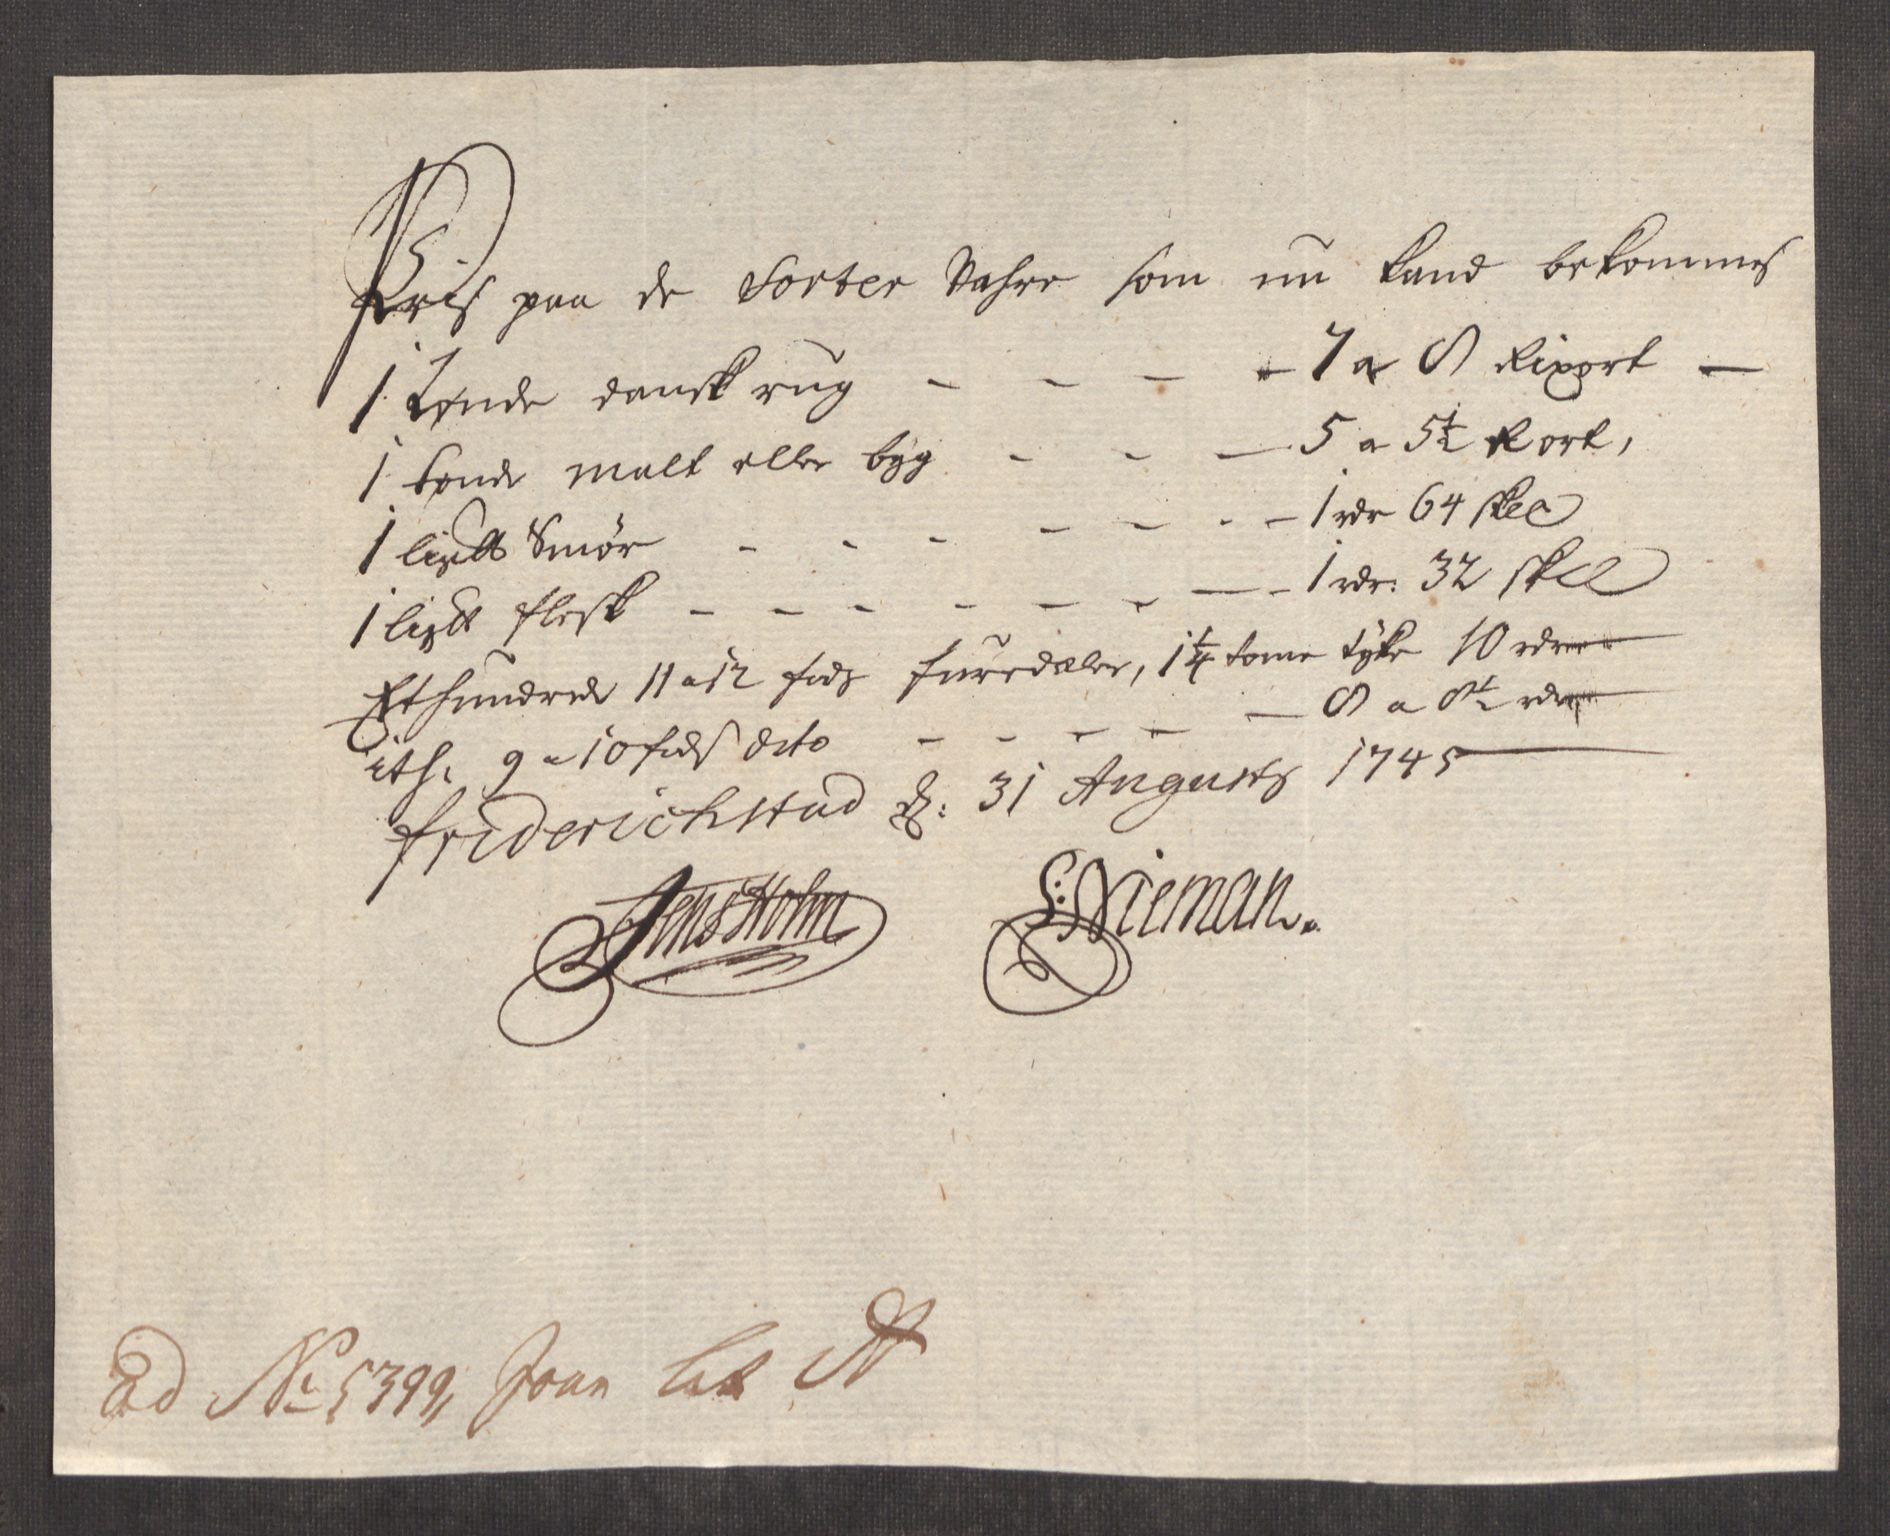 Pris paa de Sorter Vahre som nu kand bekommes
1 Tønde dansk rug - - - - 7 a 8 Rixort -
1 tønde malt eller byg - - - 5 a 5½ R ort,
1 lis℔ Smør - - - - - - - 1 rdr 64 skll
1 lis℔ flesk - - - - - - - - 1 rdr: 32 skll
Et hundrede 11 a 12 fods furedæler, 1¼ tome tyke 10 rdr
it h: 9 a 10 fods dito - - - - - 8 a 8½ rdr
friderichstad d: 31 Augusts 1745
Jens Holm
C: Nieman.
Ad No 5399, Joun lit A